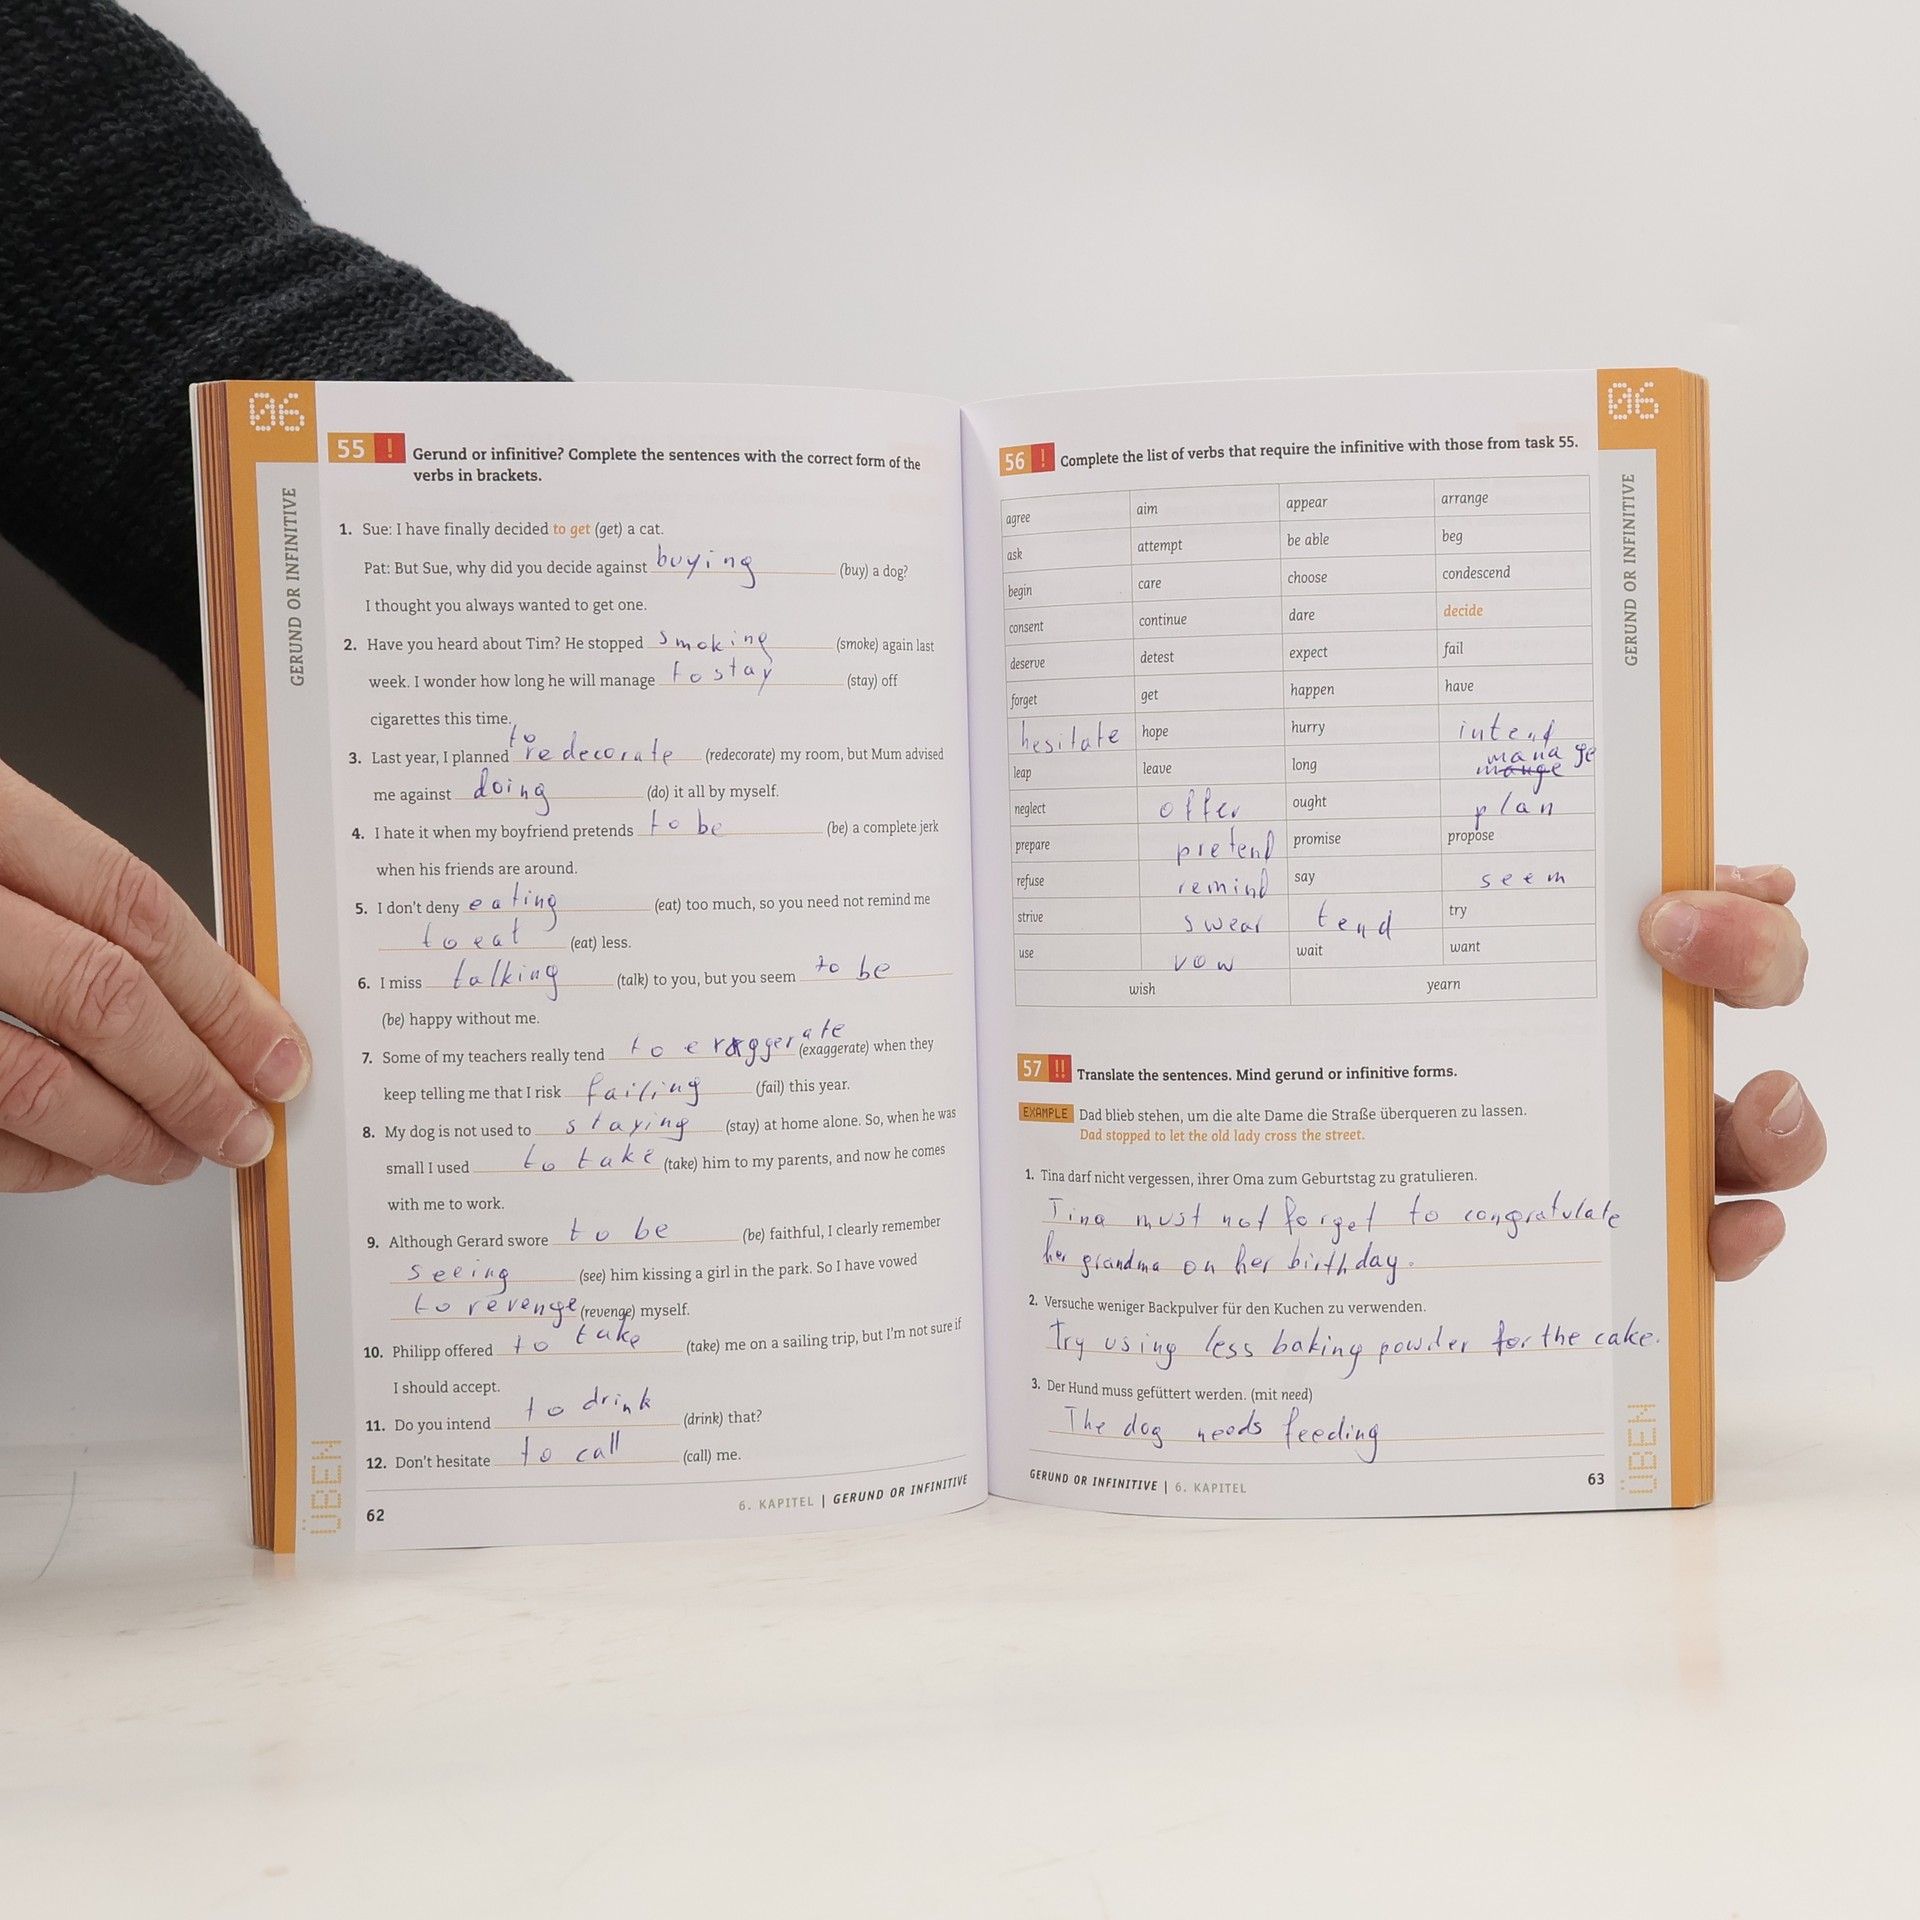 06
GERUND OR INFINITIVE
55 ! Gerund or infinitive? Complete the sentences with the correct form of the
verbs in brackets.
1. Sue: I have finally decided to get (get) a cat.
Pat: But Sue, why did you decide against buying (buy) a dog?
I thought you always wanted to get one.
2. Have you heard about Tim? He stopped smoking (smoke) again last
week. I wonder how long he will manage to stay (stay) off
cigarettes this time.
3. Last year, I planned to redecorate (redecorate) my room, but Mum advised
me against doing (do) it all by myself.
4. I hate it when my boyfriend pretends to be (be) a complete jerk
when his friends are around.
5. I don't deny eating (eat) too much, so you need not remind me
to eat (eat) less.
6. I miss talking (talk) to you, but you seem to be
(be) happy without me.
7. Some of my teachers really tend to exaggerate (exaggerate) when they
keep telling me that I risk failing (fail) this year.
8. My dog is not used to staying (stay) at home alone. So, when he was
small I used to take (take) him to my parents, and now he comes
with me to work.
9. Although Gerard swore to be (be) faithful, I clearly remember
seeing (see) him kissing a girl in the park. So I have vowed
to revenge (revenge) myself.
10. Philipp offered to take (take) me on a sailing trip, but I'm not sure if
I should accept.
11. Do you intend to drink (drink) that?
12. Don't hesitate to call (call) me.
ÜBEN
62
6. KAPITEL | GERUND OR INFINITIVE
06
GERUND OR INFINITIVE
56 ! Complete the list of verbs that require the infinitive with those from task 55.
agree aim appear arrange
ask attempt be able beg
begin care choose condescend
consent continue dare decide
deserve detest expect fail
forget get happen have
hesitate hope hurry intend
leap leave long mange manage
neglect offer ought plan
prepare pretend promise propose
refuse remind say seem
strive swear tend try
use vow wait want
wish yearn
57 !! Translate the sentences. Mind gerund or infinitive forms.
EXAMPLE Dad blieb stehen, um die alte Dame die Straße überqueren zu lassen.
Dad stopped to let the old lady cross the street.
1. Tina darf nicht vergessen, ihrer Oma zum Geburtstag zu gratulieren.
Tina must not forget to congratulate
her grandma on her birthday.
2. Versuche weniger Backpulver für den Kuchen zu verwenden.
Try using less baking powder for the cake.
3. Der Hund muss gefüttert werden. (mit need)
The dog needs feeding
GERUND OR INFINITIVE | 6. KAPITEL
63
ÜBEN